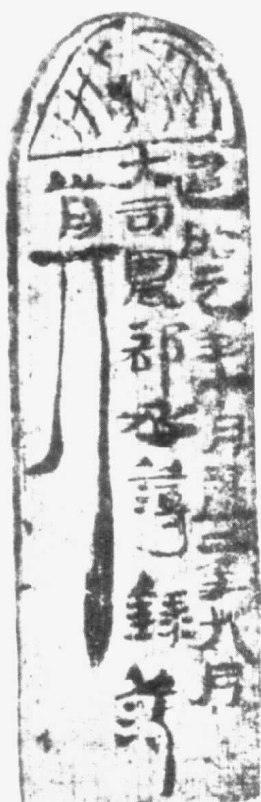 建昭元年十月盡二年九月
大司農部丞簿錄簿
算